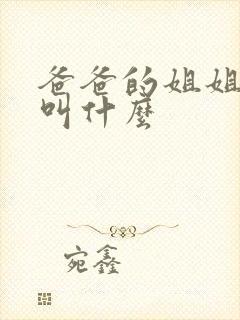 爸爸的姐姐
叫什麼
宛鑫